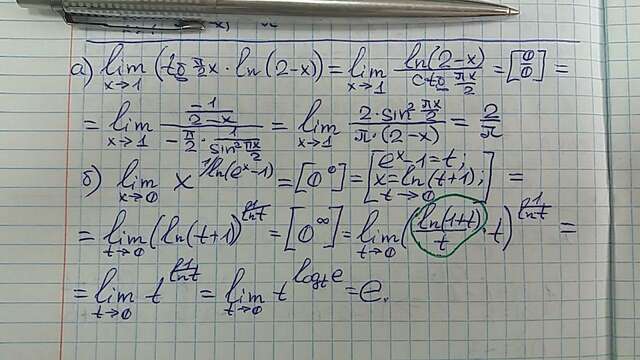 а) lim x→1 (tg π/2 x · ln(2-x)) = lim x→1 ln(2-x)/ctg πx/2 = [0/0] =
= lim x→1 (-1/(2-x))/(-π/2 · 1/sin² πx/2) = lim x→1 2·sin² πx/2 / π·(2-x) = 2/π
б) lim x→0 x^(1/ln(eˣ-1)) = [0⁰] = [eˣ-1=t; x=ln(t+1); t→0] =
= lim t→0 (ln(t+1))^(1/ln t) = [0^∞] = lim t→0 (ln(1+t)/t · t)^(1/ln t) =
= lim t→0 t^(1/ln t) = lim t→0 t^(log_t e) = e.